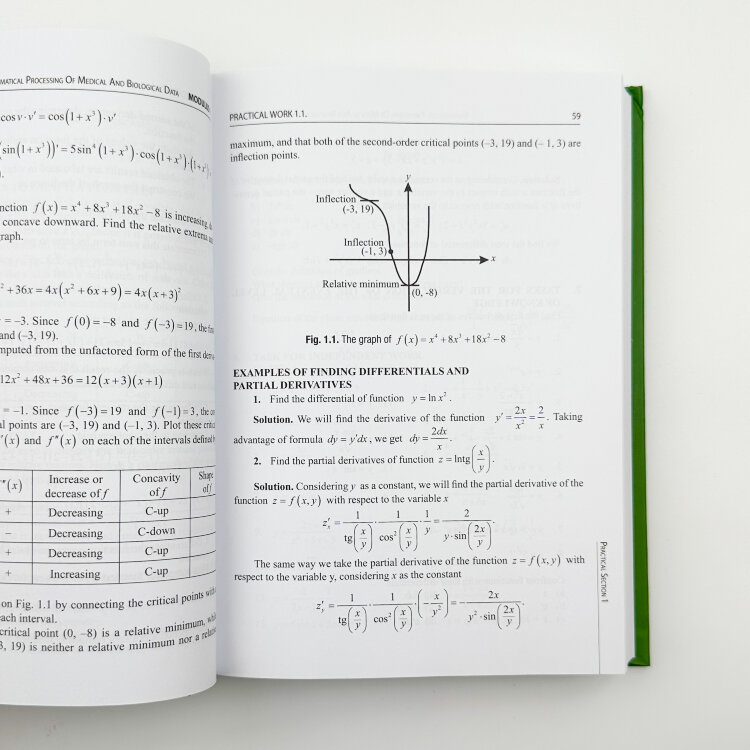 MATICAL PROCESSING OF MEDICAL AND BIOLOGICAL DATA
cos v · v′ = cos(1 + x³) · v′
sin(1 + x³))′ = 5sin⁴(1 + x³) · cos(1 + x³) · (1 + x³)
nction f(x) = x⁴ + 8x³ + 18x² − 8 is increasing,
concave downward. Find the relative extrema
raph.
² + 36x = 4x(x² + 6x + 9) = 4x(x + 3)²
= −3. Since f(0) = −8 and f(−3) = 19, the
and (−3, 19).
mputed from the unfactored form of the first
12x² + 48x + 36 = 12(x + 3)(x + 1)
= −1. Since f(−3) = 19 and f(−1) = 3, the
al points are (−3, 19) and (−1, 3). Plot these
′(x) and f″(x) on each of the intervals defined
″(x) Increase or decrease of f Concavity of f Shape of f
+ Decreasing C-up
− Decreasing C-down
+ Decreasing C-up
+ Increasing C-up
on Fig. 1.1 by connecting the critical points
each interval.
critical point (0, −8) is a relative minimum,
3, 19) is neither a relative minimum nor a
PRACTICAL WORK 1.1. 59
maximum, and that both of the second-order critical points (−3, 19) and (− 1, 3) are
inflection points.
y
Inflection
(-3, 19)
Inflection
(-1, 3)
x
Relative minimum
(0, -8)
Fig. 1.1. The graph of f(x) = x⁴ + 8x³ + 18x² − 8
EXAMPLES OF FINDING DIFFERENTIALS AND
PARTIAL DERIVATIVES
1. Find the differential of function y = ln x².
Solution. We will find the derivative of the function y′ = 2x/x² = 2/x. Taking
advantage of formula dy = y′dx, we get dy = 2dx/x.
2. Find the partial derivatives of function z = lntg(x/y).
Solution. Considering y as a constant, we will find the partial derivative of the
function z = f(x, y) with respect to the variable x
z′ₓ = 1/tg(x/y) · 1/cos²(x/y) · 1/y = 2/(y · sin(2x/y)).
The same way we take the partial derivative of the function z = f(x, y) with
respect to the variable y, considering x as the constant
z′ᵧ = 1/tg(x/y) · 1/cos²(x/y) · (−x/y²) = −2x/(y² · sin(2x/y)).
PRACTICAL SECTION 1